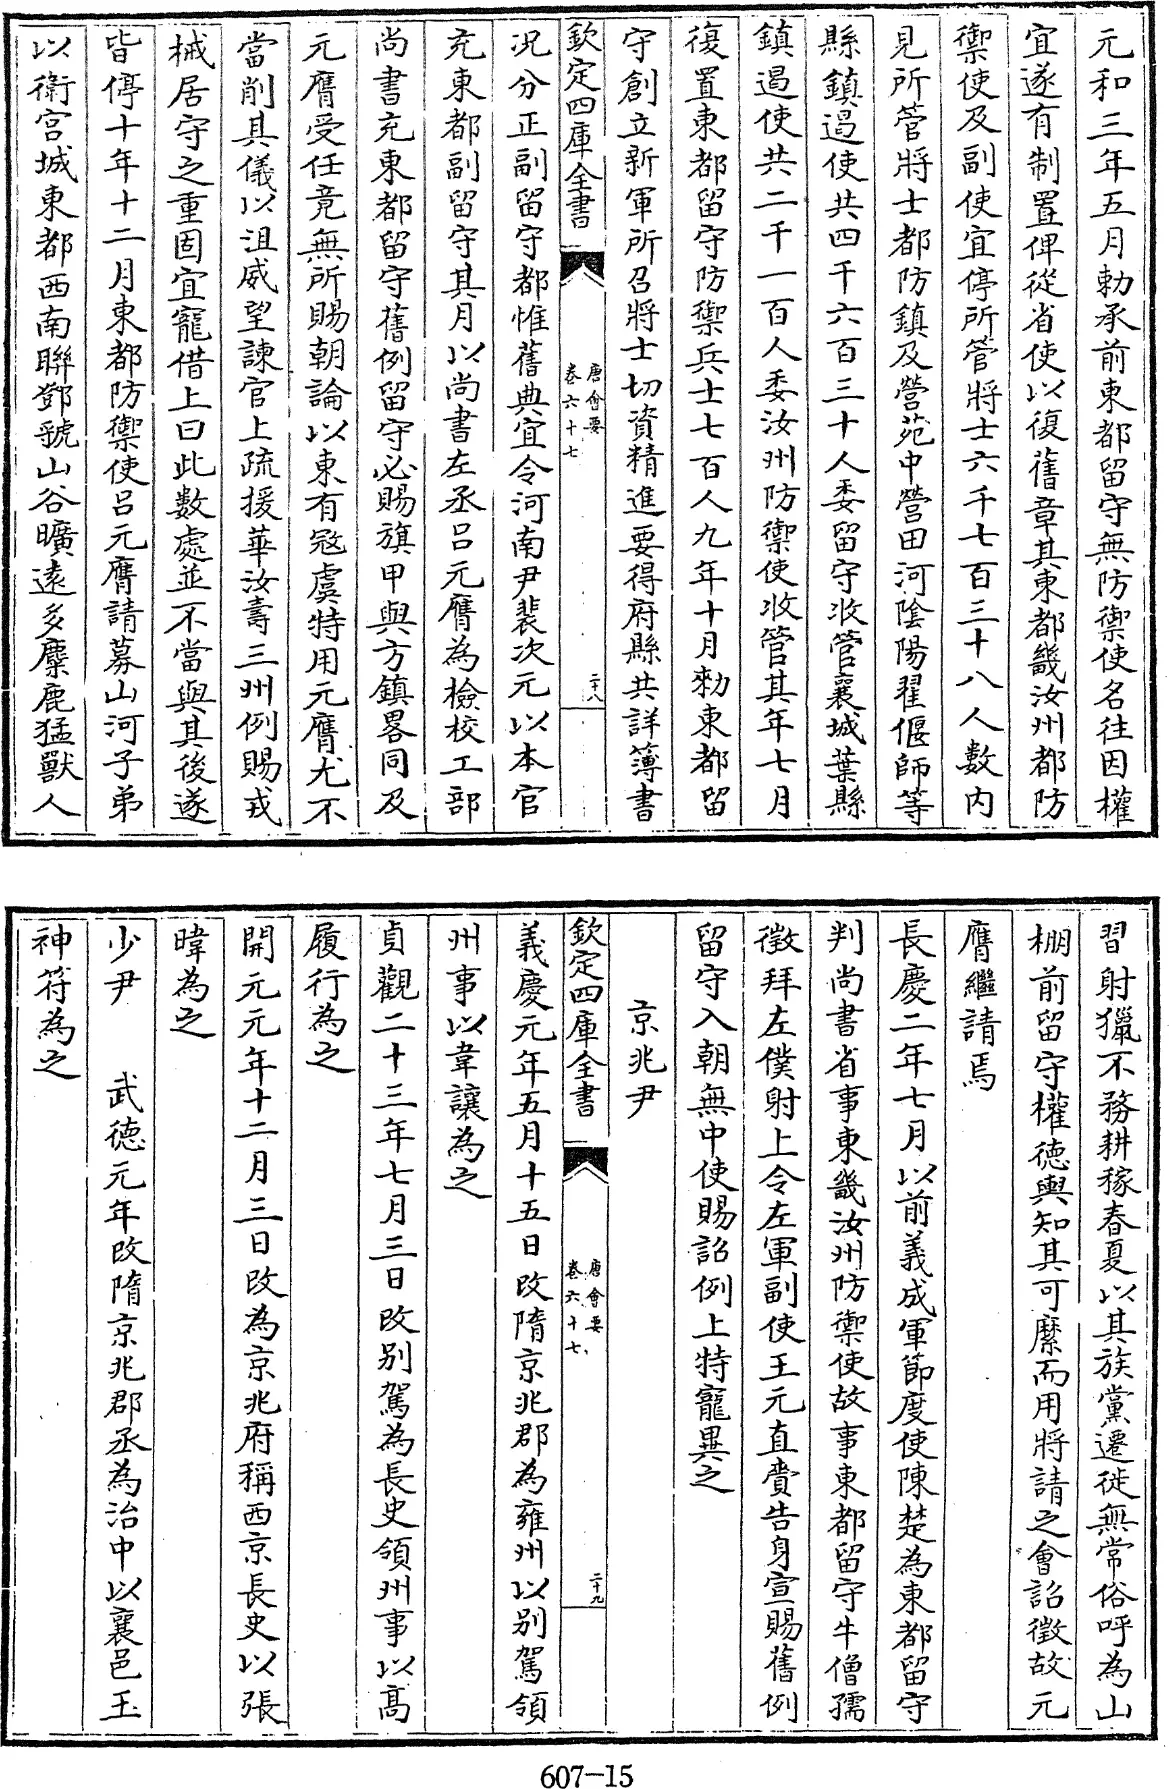 元和三年五月勅承前東都留守無防禦使名往因權
宜遂有制置俾從省使以復舊章其東都畿汝州都防
禦使及副使宜停所管將士六千七百三十八人數内
見所管將士都防鎮及營苑中營田河陰陽翟偃師等
縣鎮遏使共四千六百三十人委留守收管襄城葉縣
鎮遏使共二千一百人委汝州防禦使收管其年七月
復置東都留守防禦兵士七百人九年十月勑東都留
守創立新軍所召將士切資精進要得府縣共詳簿書
欽定四庫全書
唐會要
卷六十七
二十八
况分正副留守都惟舊典宜令河南尹裴次元以本官
充東都副留守其月以尚書左丞吕元膺為檢校工部
尚書充東都留守舊例留守必賜旗甲與方鎮畧同及
元膺受任竟無所賜朝論以東有寇虞特用元膺尤不
當削其儀以沮威望諫官上疏援華汝壽三州例賜戎
械居守之重固宜寵借上曰此數處並不當與其後遂
皆停十年十二月東都防禦使吕元膺請募山河子弟
以衛宫城東都西南聯鄧虢山谷曠遠多麋鹿猛獸人
習射獵不務耕稼春夏以其族黨遷徙無常俗呼為山
棚前留守權德輿知其可縻而用將請之會詔徵故元
膺繼請焉
長慶二年七月以前義成軍節度使陳楚為東都留守
判尚書省事東畿汝州防禦使故事東都留守牛僧孺
徵拜左僕射上令左軍副使王元直賫告身宣賜舊例
留守入朝無中使賜詔例上特寵異之
京兆尹
欽定四庫全書
唐會要
卷六十七
二十九
義慶元年五月十五日改隋京兆郡為雍州以别駕領
州事以韋讓為之
貞觀二十三年七月三日改别駕為長史領州事以髙
履行為之
開元元年十二月三日改為京兆府稱西京長史以張
暐為之
少尹　武德元年改隋京兆郡丞為治中以襄邑王
神符為之
607-15